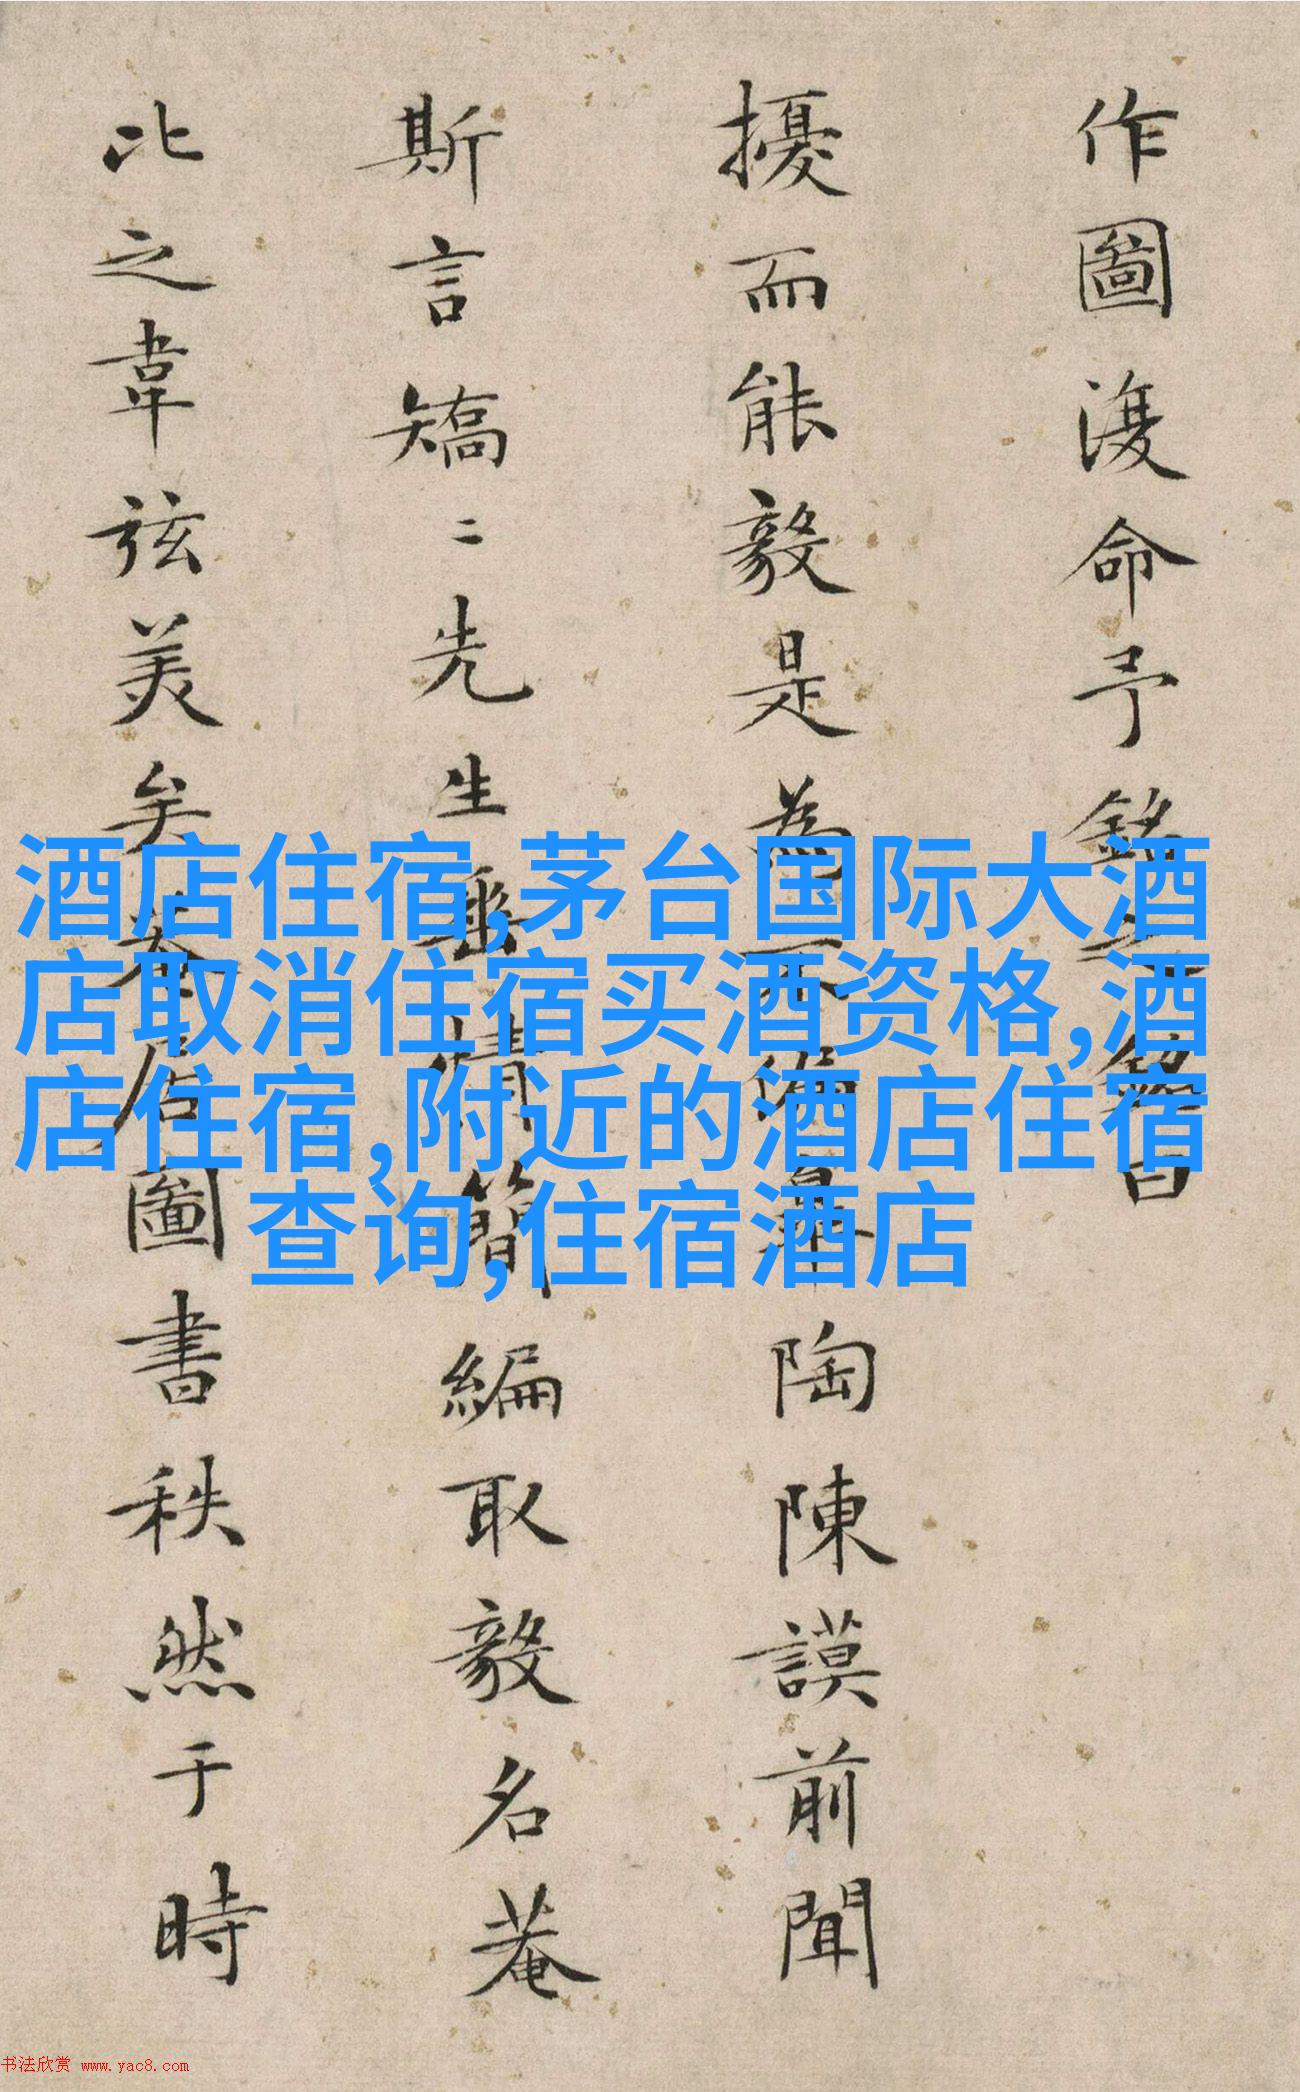 作圖復命予銘之銘曰
擾而能毅是為不偏皋陶陳謨前聞
斯言矯二先生垂情簡編取毅名菴
比之韋弦美矣菴居圖書秩然于時
酒店住宿,茅台国际大酒
店取消住宿买酒资格,酒
店住宿,附近的酒店住宿
查询,住宿酒店
书法欣赏 www.yac8.com